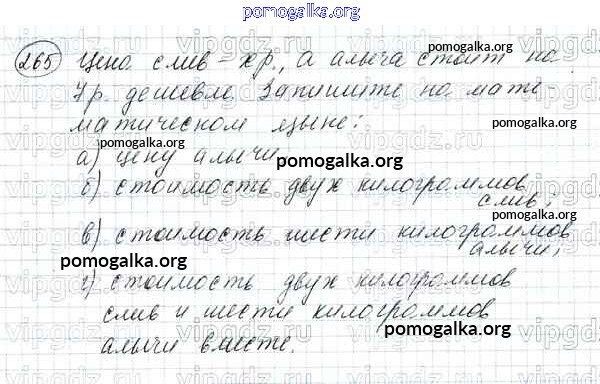 pomogalka.org
265 Цена слив - x р., а алыча стоит на
pomogalka.org
7 р. дешевле. Запишите на мате-
матическом языке:
pomogalka.org
а) цену алычи
pomogalka.org
б) стоимость двух килограммов
слив;
pomogalka.org
в) стоимость шести килограммов
алычи;
pomogalka.org
г) стоимость двух килограммов
pomogalka.org
слив и шести килограммов
pomogalka.org
алычи вместе.